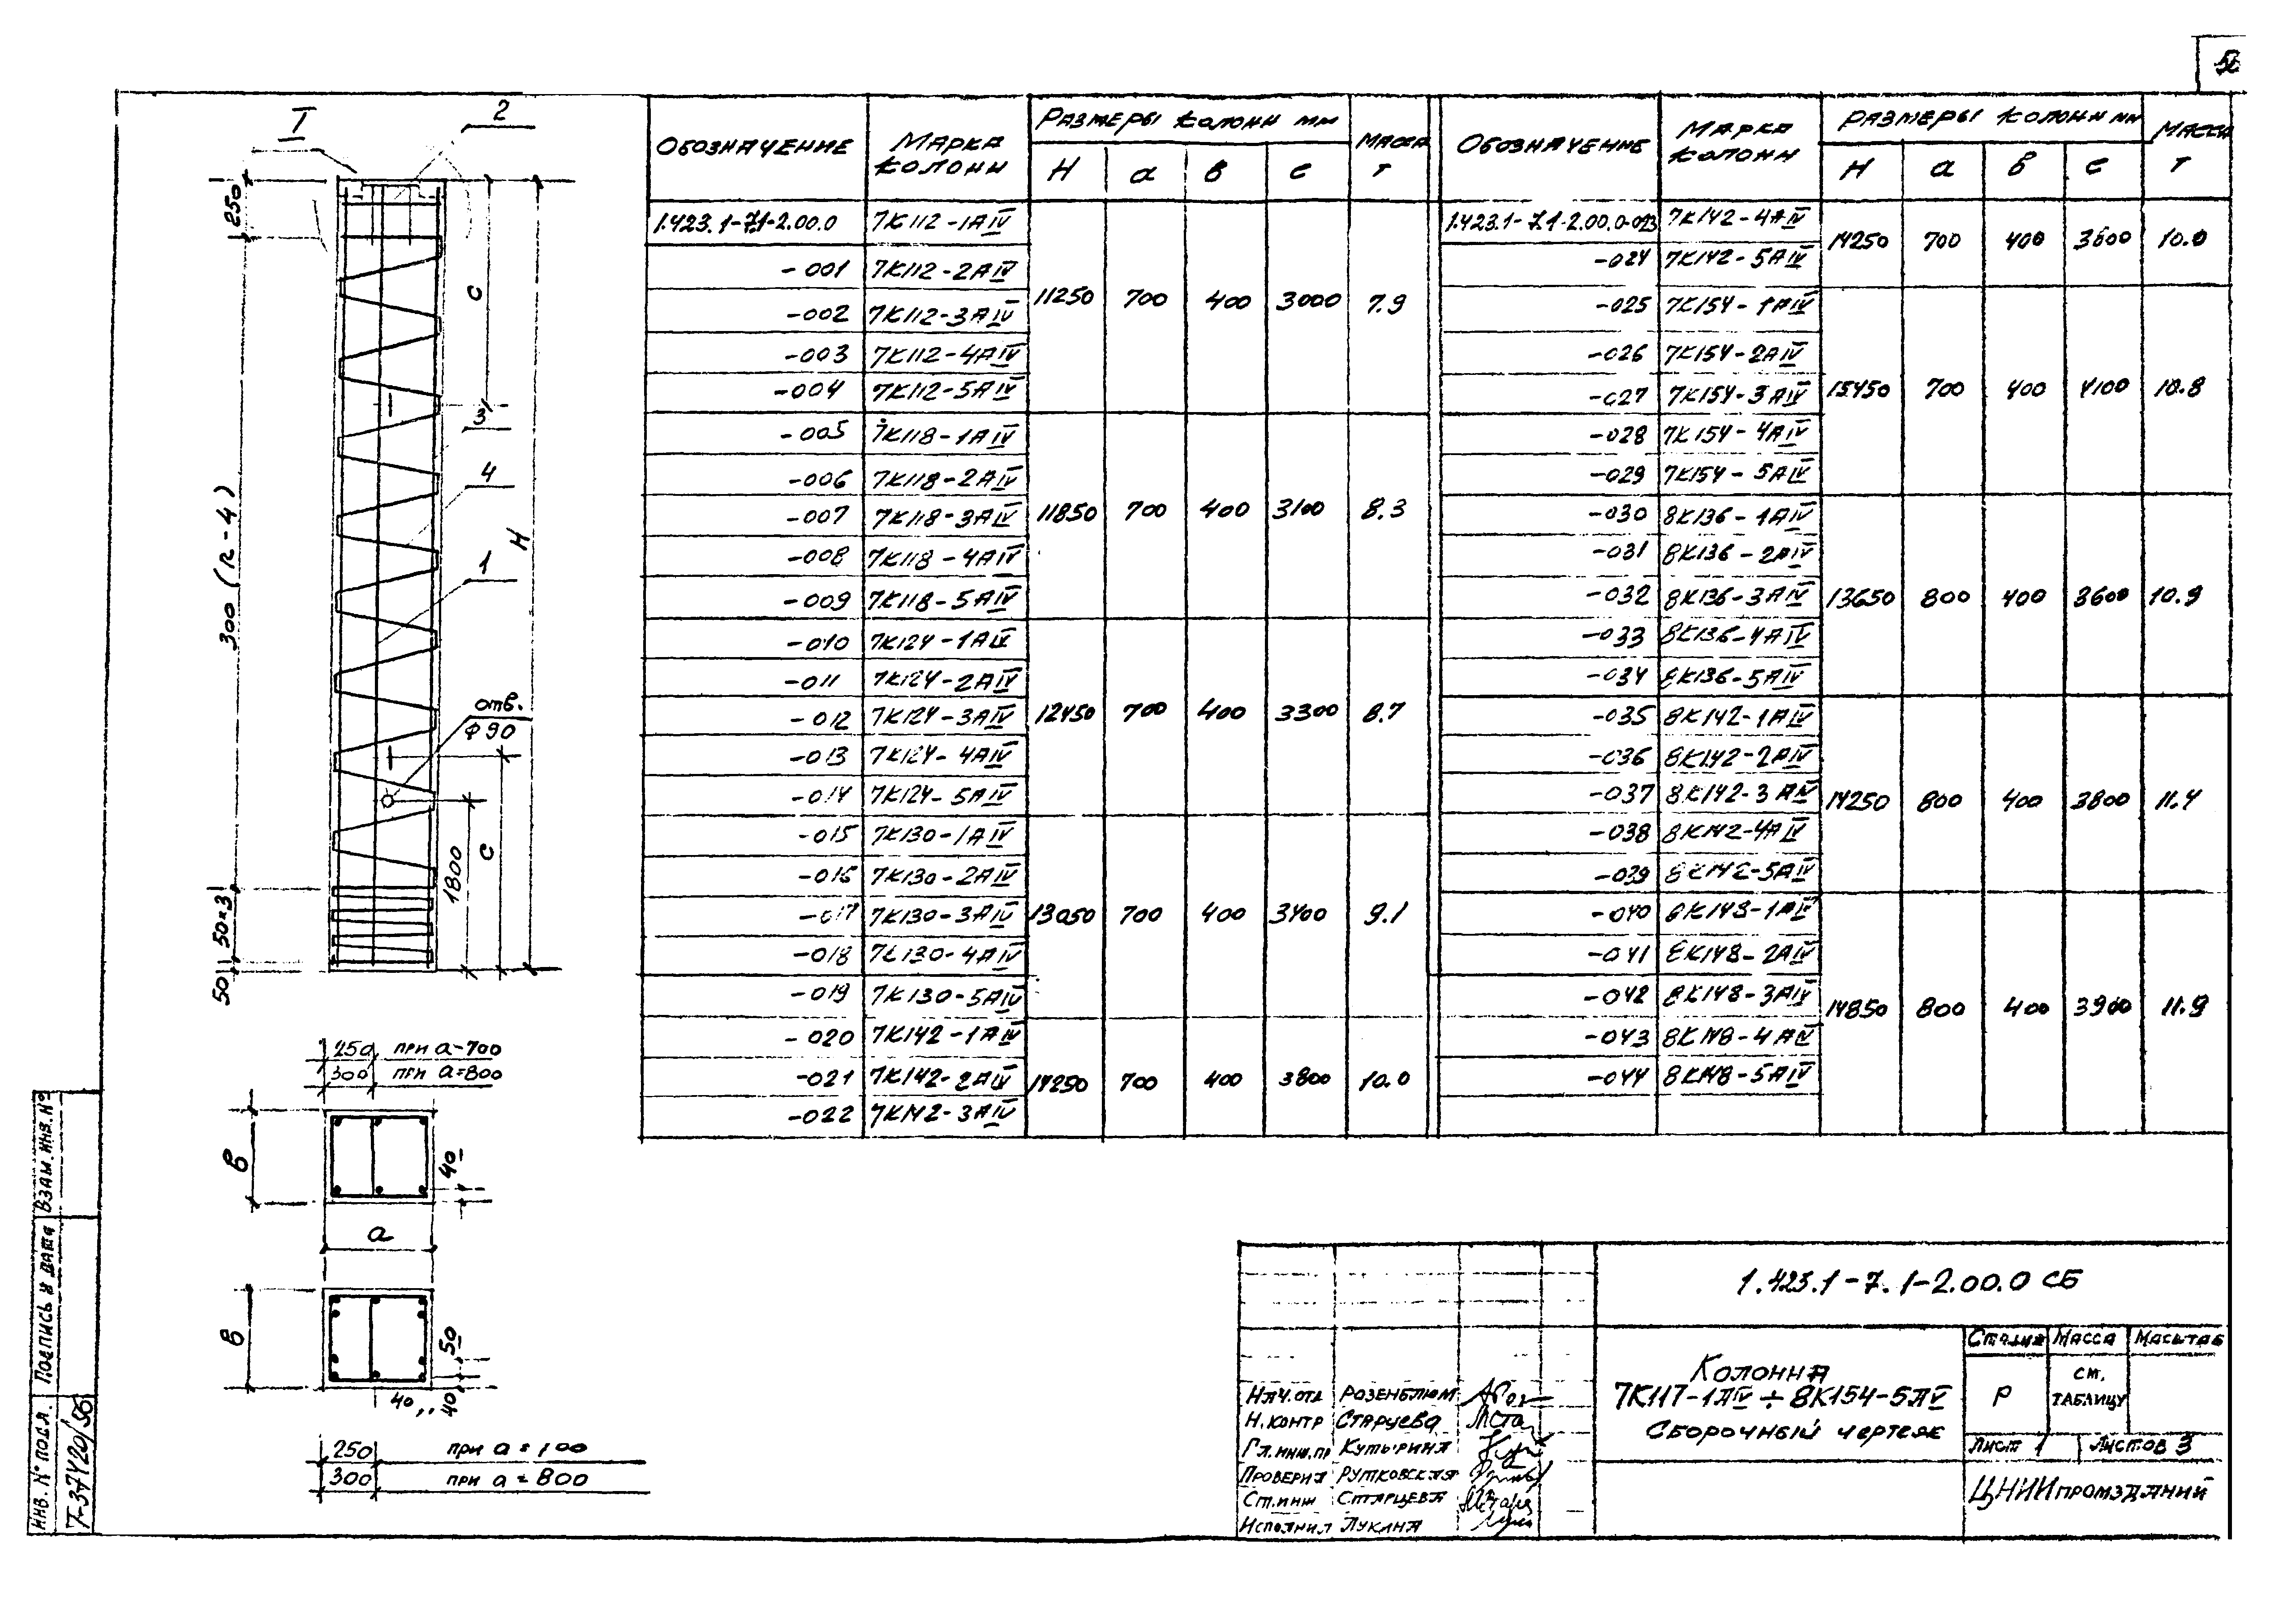 56
I
2
250
C
3
4
1
H
300 (n-4)
отв.
Ф90
1800
C
50×3
50
250 при а-700
300 при а=800
в
40
а
в
50
40
40
250 при а=700
300 при а=800
Обозначение | Марка колонн | Размеры колонн мм | Масса т
H | а | в | с
1.423.1-7.1-2.00.0 | 7К112-1АIV
-001 | 7К112-2АIV
-002 | 7К112-3АIV | 11250 | 700 | 400 | 3000 | 7.9
-003 | 7К112-4АIV
-004 | 7К112-5АIV
-005 | 7К118-1АIV
-006 | 7К118-2АIV
-007 | 7К118-3АIV | 11850 | 700 | 400 | 3100 | 8.3
-008 | 7К118-4АIV
-009 | 7К118-5АIV
-010 | 7К124-1АIV
-011 | 7К124-2АIV
-012 | 7К124-3АIV | 12450 | 700 | 400 | 3300 | 8.7
-013 | 7К124-4АIV
-014 | 7К124-5АIV
-015 | 7К130-1АIV
-016 | 7К130-2АIV
-017 | 7К130-3АIV | 13050 | 700 | 400 | 3400 | 9.1
-018 | 7К130-4АIV
-019 | 7К130-5АIV
-020 | 7К142-1АIV
-021 | 7К142-2АIV | 14250 | 700 | 400 | 3800 | 10.0
-022 | 7К142-3АIV
Обозначение | Марка колонн | Размеры колонн мм | Масса т
H | а | в | с
1.423.1-7.1-2.00.0-023 | 7К142-4АIV | 14250 | 700 | 400 | 3800 | 10.0
-024 | 7К142-5АIV
-025 | 7К154-1АIV
-026 | 7К154-2АIV
-027 | 7К154-3АIV | 15450 | 700 | 400 | 4100 | 10.8
-028 | 7К154-4АIV
-029 | 7К154-5АIV
-030 | 8К136-1АIV
-031 | 8К136-2АIV
-032 | 8К136-3АIV | 13650 | 800 | 400 | 3600 | 10.9
-033 | 8К136-4АIV
-034 | 8К136-5АIV
-035 | 8К142-1АIV
-036 | 8К142-2АIV
-037 | 8К142-3АIV | 14250 | 800 | 400 | 3800 | 11.4
-038 | 8К142-4АIV
-039 | 8К142-5АIV
-040 | 8К148-1АIV
-041 | 8К148-2АIV
-042 | 8К148-3АIV | 14850 | 800 | 400 | 3900 | 11.9
-043 | 8К148-4АIV
-044 | 8К148-5АIV
1.423.1-7.1-2.00.0 СБ
Колонна
7К117-1АIV ÷ 8К154-5АIV
Сборочный чертеж
Стадия | Масса | Масштаб
Р | см. таблицу
Лист 1 | Листов 3
ЦНИИпромзданий
Нач.отд Розенблюм
Н.контр Старцева
Гл.инж.пр Кутырина
Проверил Рутковская
Ст.инж Старцева
Исполнил Лукина
Взам.инв.№
Подпись и дата
Инв. № подл.
Т-37420/56